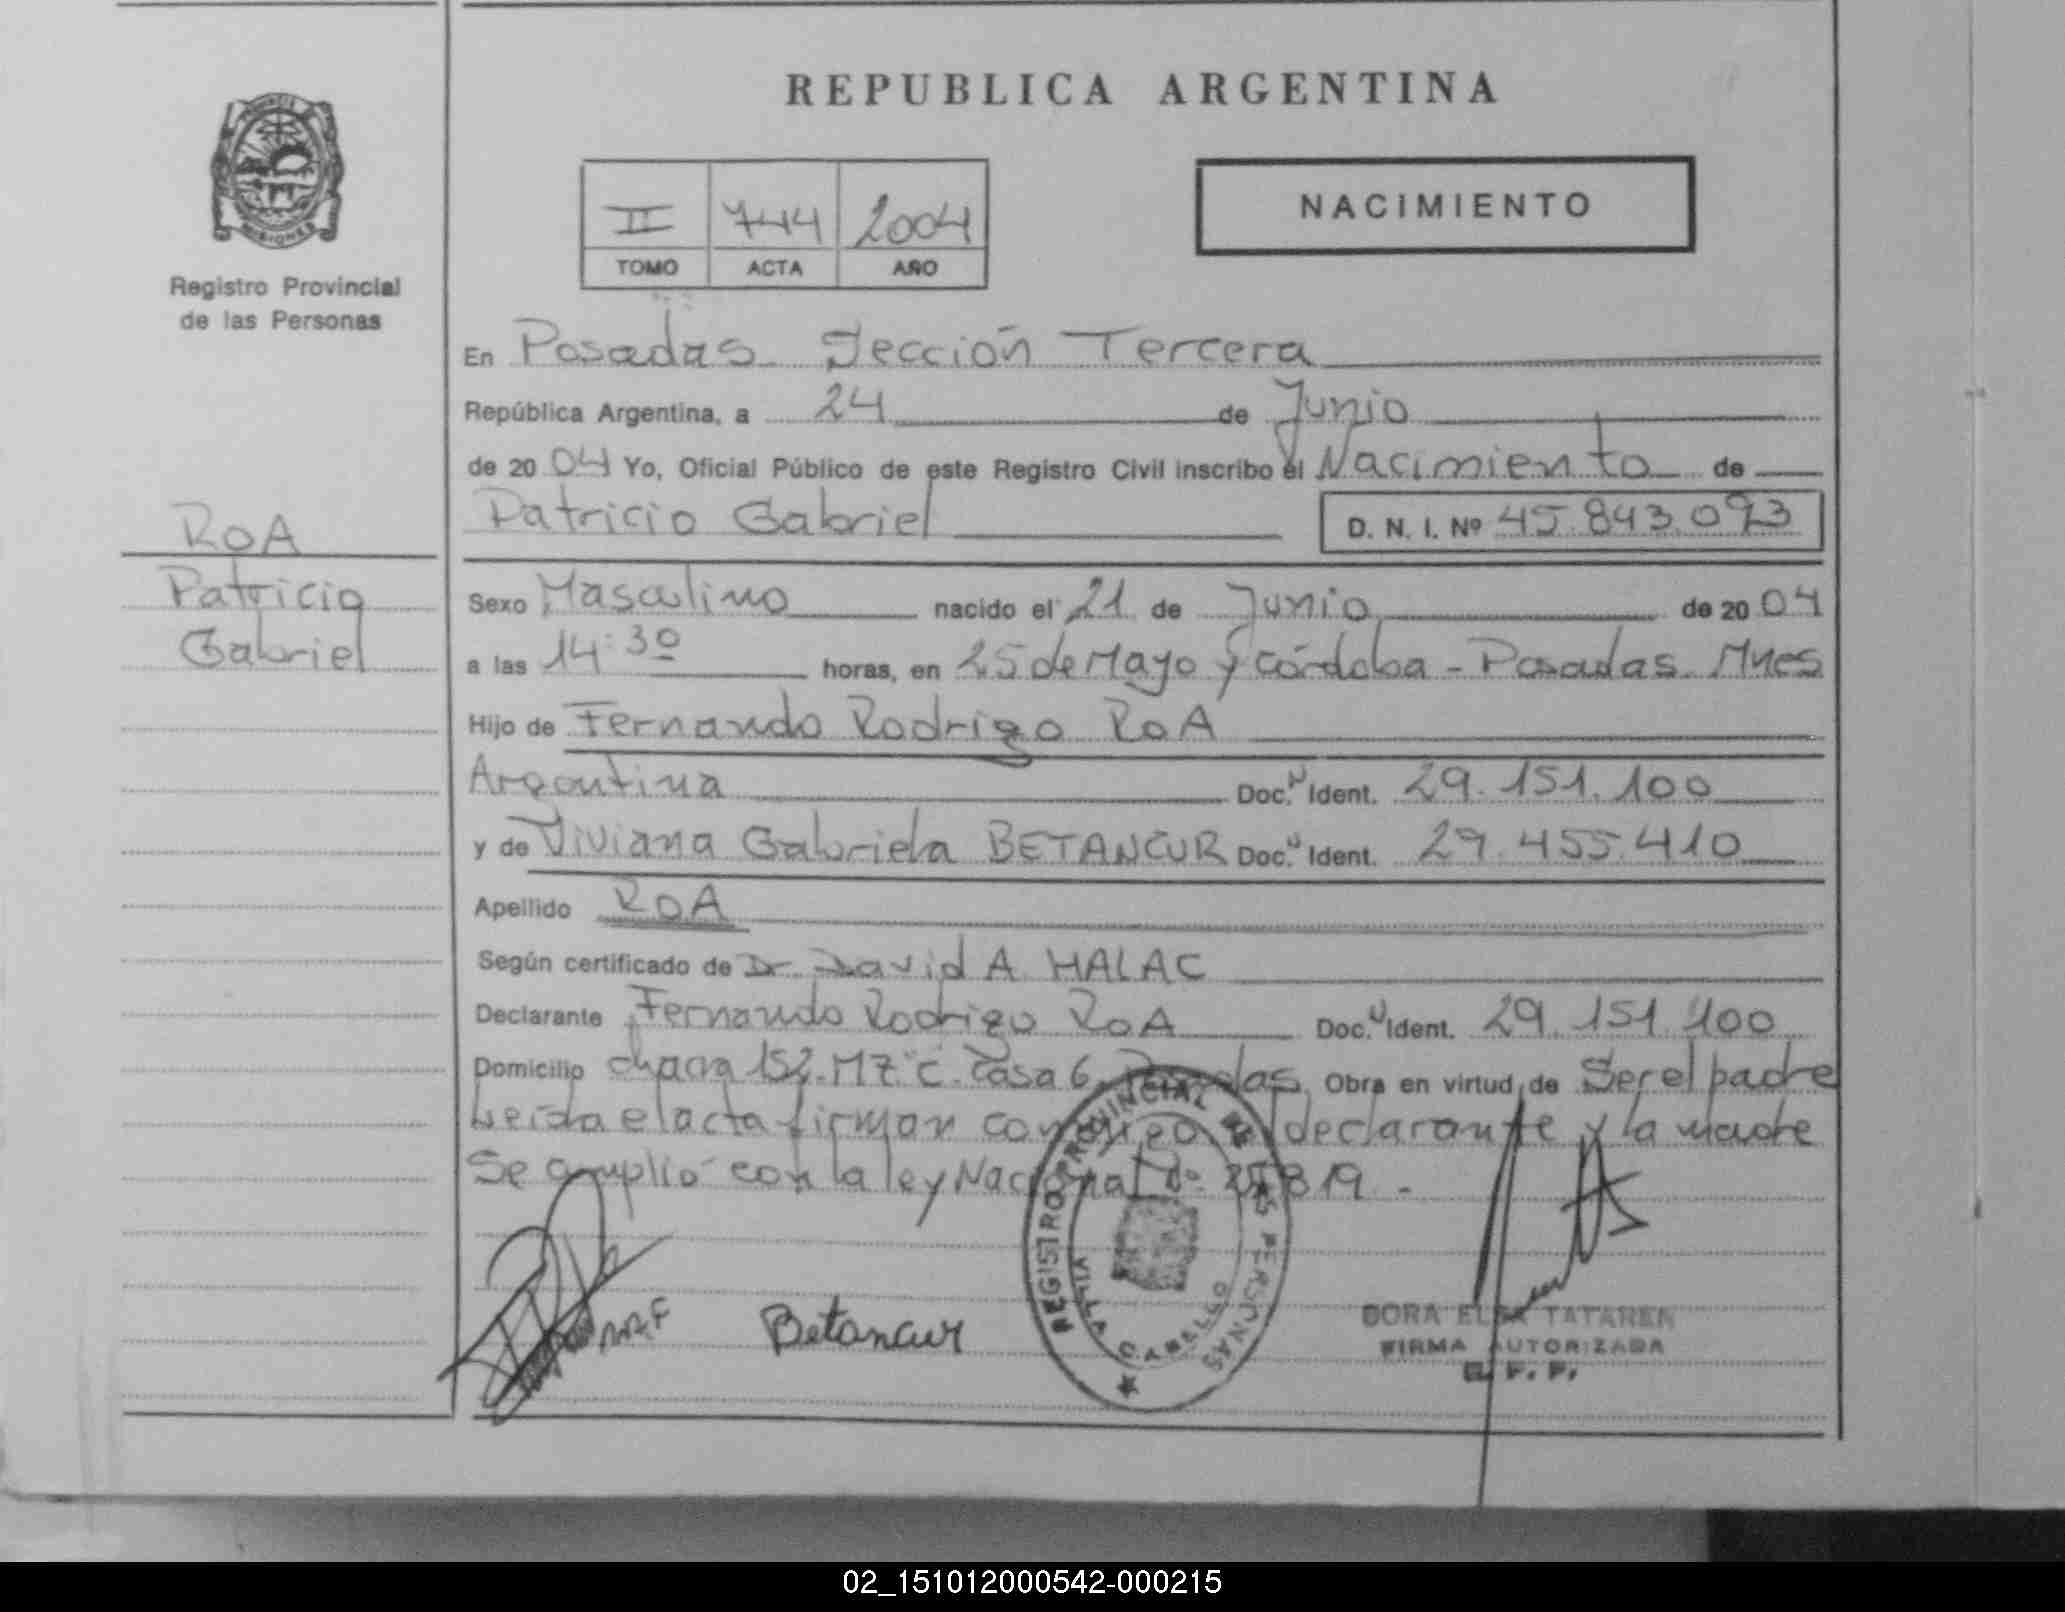 REPUBLICA ARGENTINA
MISIONES
Registro Provincial
de las Personas
II 744 2004
TOMO ACTA AÑO
NACIMIENTO
En Posadas Sección Tercera
República Argentina, a 24 de Junio
de 2004 Yo, Oficial Público de este Registro Civil inscribo el Nacimiento de
Patricio Gabriel D. N. I. Nº 45.843.093
ROA
Patricio
Gabriel
Sexo Masculino nacido el 21 de Junio de 2004
a las 14:30 horas, en 25 de Mayo y Córdoba - Posadas. Mnes
Hijo de Fernando Rodrigo ROA
Argentina Doc. N Ident. 29.151.100
y de Viviana Gabriela BETANCUR Doc. N Ident. 29.455.410
Apellido ROA
Según certificado de Dr. David A. HALAC
Declarante Fernando Rodrigo ROA Doc. N Ident. 29.151.100
Domicilio chacra 152. MZ "C". Casa 6. Posadas. Obra en virtud de Ser el padre
Leida el acta firman conmigo el declarante y la madre
Se amplió con la ley Nacional Nº 25.819.-
Betancur
REGISTRO PROVINCIAL DE LAS PERSONAS
VILLA CABELLO
DORA ELSA TATAREN
FIRMA AUTORIZADA
R. P. P.
02_151012000542-000215